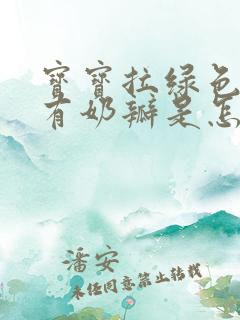 宝宝拉绿色
有奶瓣是怎
潘安
未经同意禁止转载